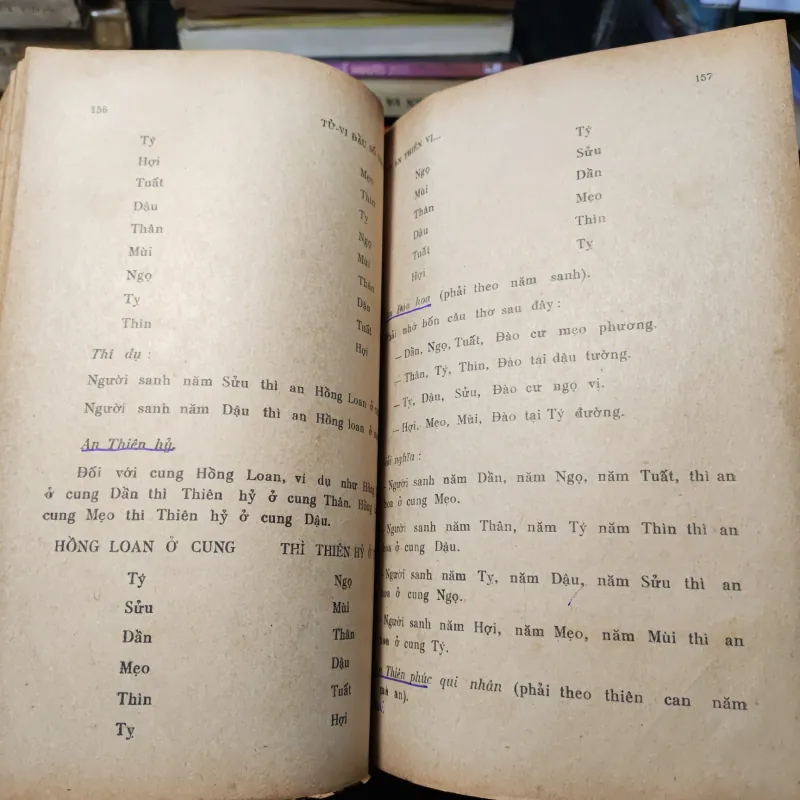 156
TỬ-VI ĐẨU SỐ
Tý Mẹo
Hợi Thìn
Tuất Tỵ
Dậu Ngọ
Thân Mùi
Mùi Thân
Ngọ Dậu
Tỵ Tuất
Thìn Hợi
Thí dụ :
Người sanh năm Sửu thì an Hồng Loan ở
Người sanh năm Dậu thì an Hồng loan ở
An Thiên hỷ
Đối với cung Hồng Loan, ví dụ như Hồng
ở cung Dần thì Thiên hỷ ở cung Thân. Hồng
cung Mẹo thì Thiên hỷ ở cung Dậu.
HỒNG LOAN Ở CUNG THÌ THIÊN HỶ Ở
Tý Ngọ
Sửu Mùi
Dần Thân
Mẹo Dậu
Thìn Tuất
Tỵ Hợi
157
AN THIÊN VỊ...
Ngọ Tý
Mùi Sửu
Thân Dần
Dậu Mẹo
Tuất Thìn
Hợi Tỵ
Đào hoa (phải theo năm sanh).
nhớ bốn câu thơ sau đây :
— Dần, Ngọ, Tuất, Đào cư mẹo phương.
— Thân, Tý, Thìn, Đào tái dậu tường.
— Tỵ, Dậu, Sửu, Đào cư ngọ vị.
— Hợi, Mẹo, Mùi, Đào tại Tý đường.
nghĩa :
Người sanh năm Dần, năm Ngọ, năm Tuất, thì an
hoa ở cung Mẹo.
Người sanh năm Thân, năm Tý năm Thìn thì an
hoa ở cung Dậu.
Người sanh năm Tỵ, năm Dậu, năm Sửu thì an
hoa ở cung Ngọ.
Người sanh năm Hợi, năm Mẹo, năm Mùi thì an
hoa ở cung Tý.
Thiên phúc qui nhân (phải theo thiên can năm
mà an).